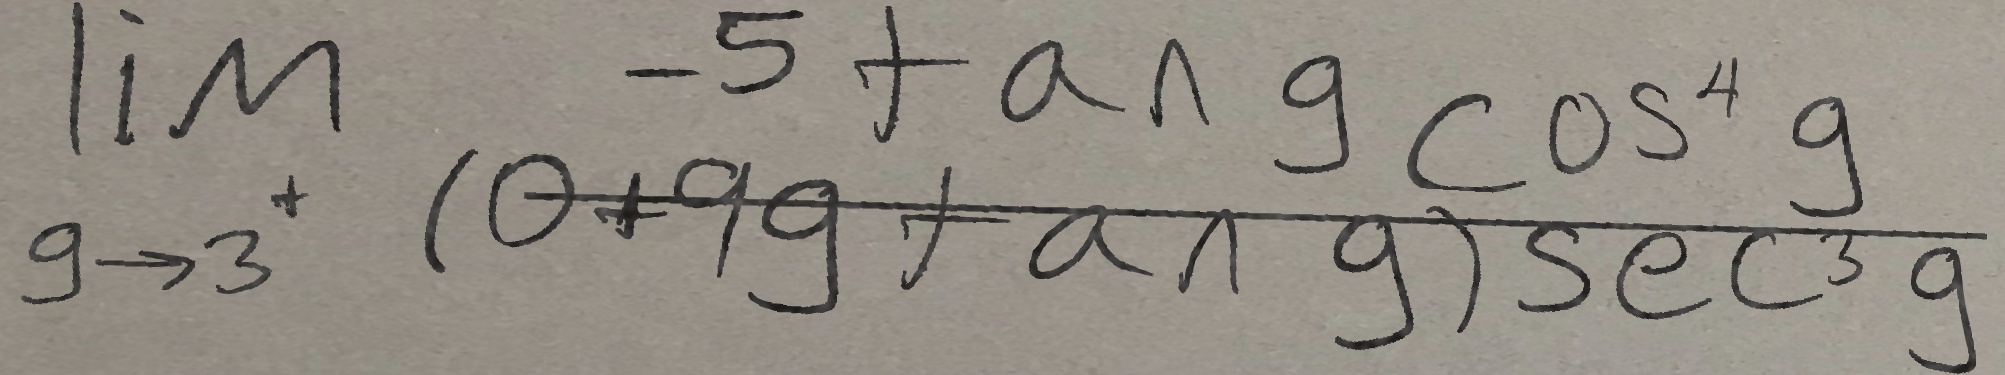 \lim_{g \to 3^+} \frac{-5 \tan g \cos^4 g}{(0 + 9g \tan g) \sec^3 g}